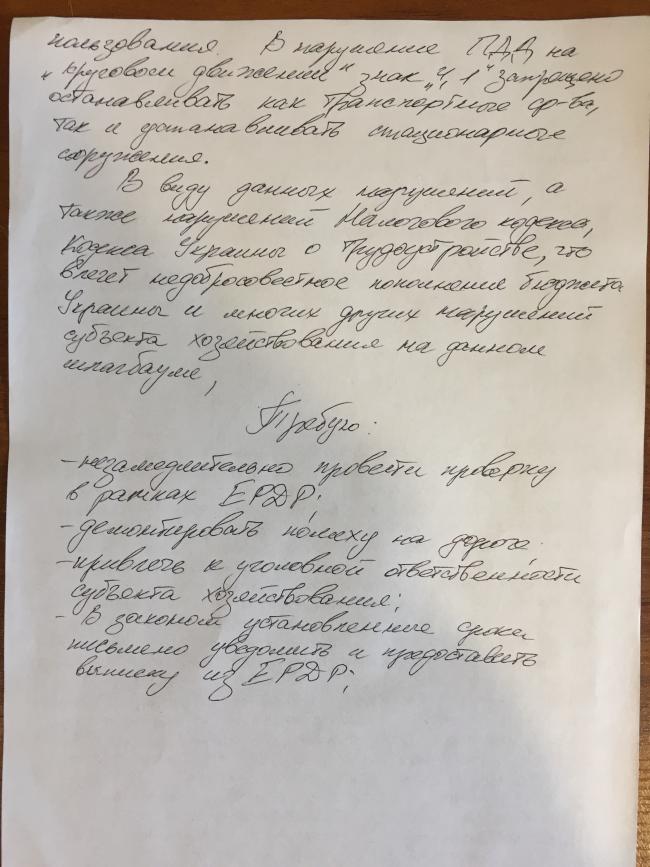 пользования. В нарушение ПДД на
„круговом движении" знак „4,1" запрещено
останавливать как транспортные ср-ва,
так и устанавливать стационарные
сооружения.
В виду данных нарушений, а
также нарушений Налогового кодекса,
Кодекса Украины о трудоустройстве, что
влечет недобросовестное пополнение бюджета
Украины и многих других нарушений
субъекта хозяйствования на данном
шлагбауме,
Требую:
-незамедлительно провести проверку
в рамках ЕРДР;
-демонтировать помеху на дороге;
-привлечь к уголовной ответственности
субъекта хозяйствования;
- В законом установленные сроки
письмено уведомить и предоставить
выписку из ЕРДР;